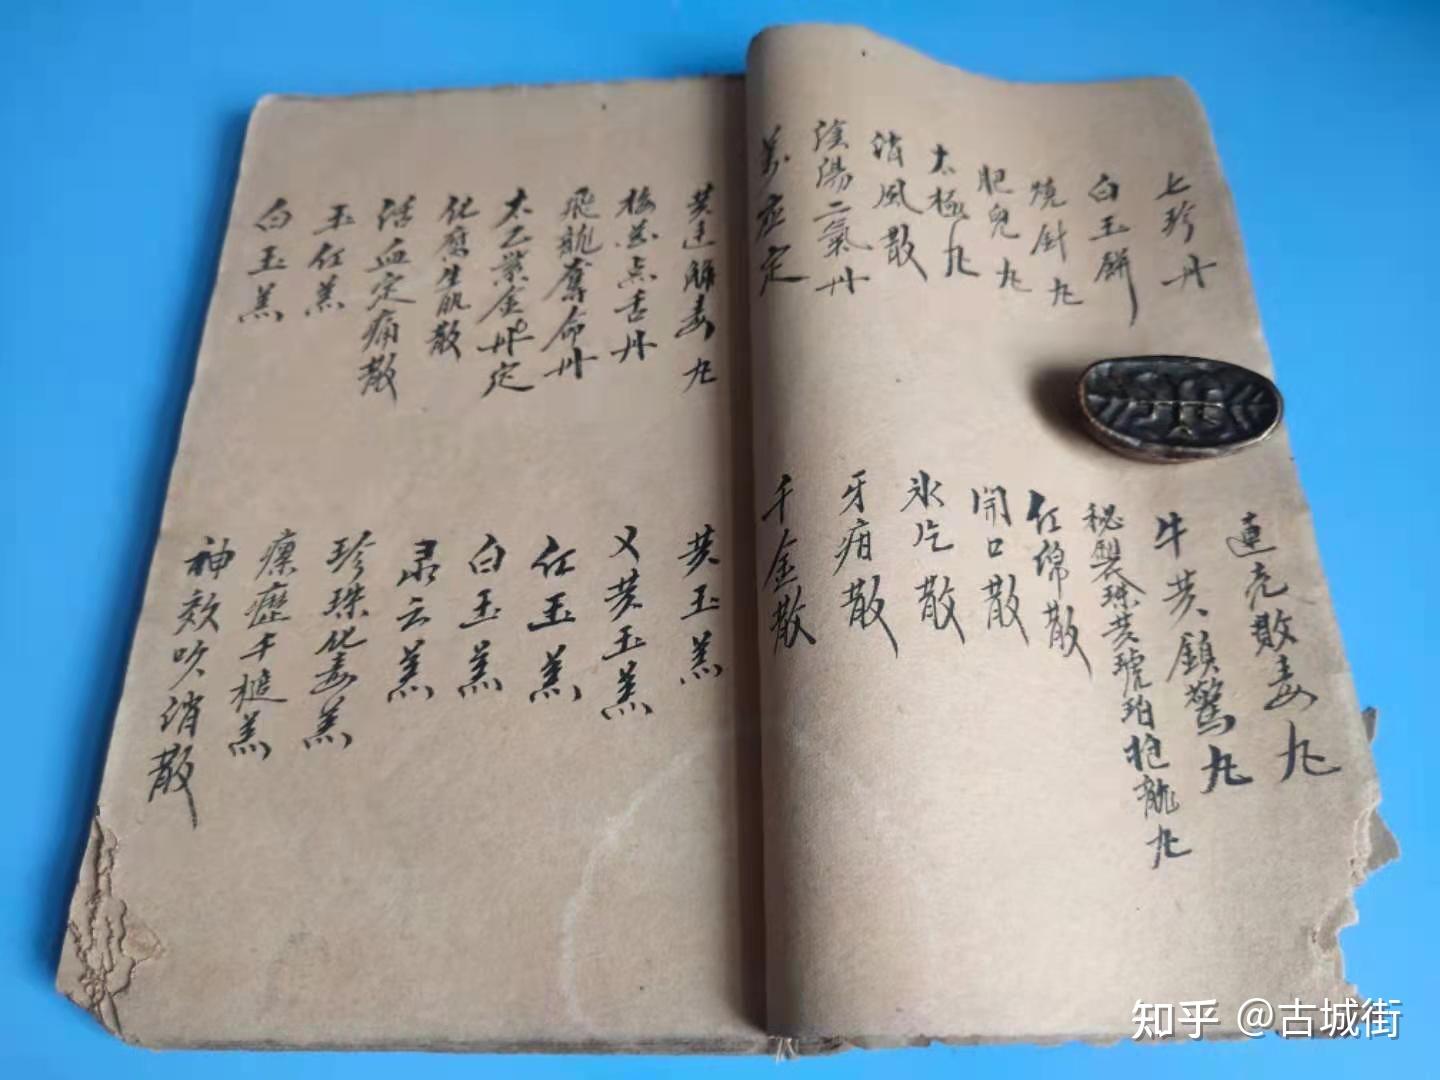 上珍丹
白玉餅
燒針丸
肥兒丸
太極丸
消風散
陰陽二氣丹
萬症定
連壳敗毒丸
牛黄鎮驚丸
秘製珠黄琥珀抱龍丸
紅綿散
開口散
氷片散
牙疳散
千金散
黄連解毒丸
梅花点舌丹
飛龍奪命丹
太乙紫金丹定
化腐生肌散
活血定痛散
玉红羔
白玉羔
黄玉羔
又黄玉羔
红玉羔
白玉羔
灵云羔
珍珠化毒羔
瘰癧千槌羔
神效吹消散
知乎 @古城街